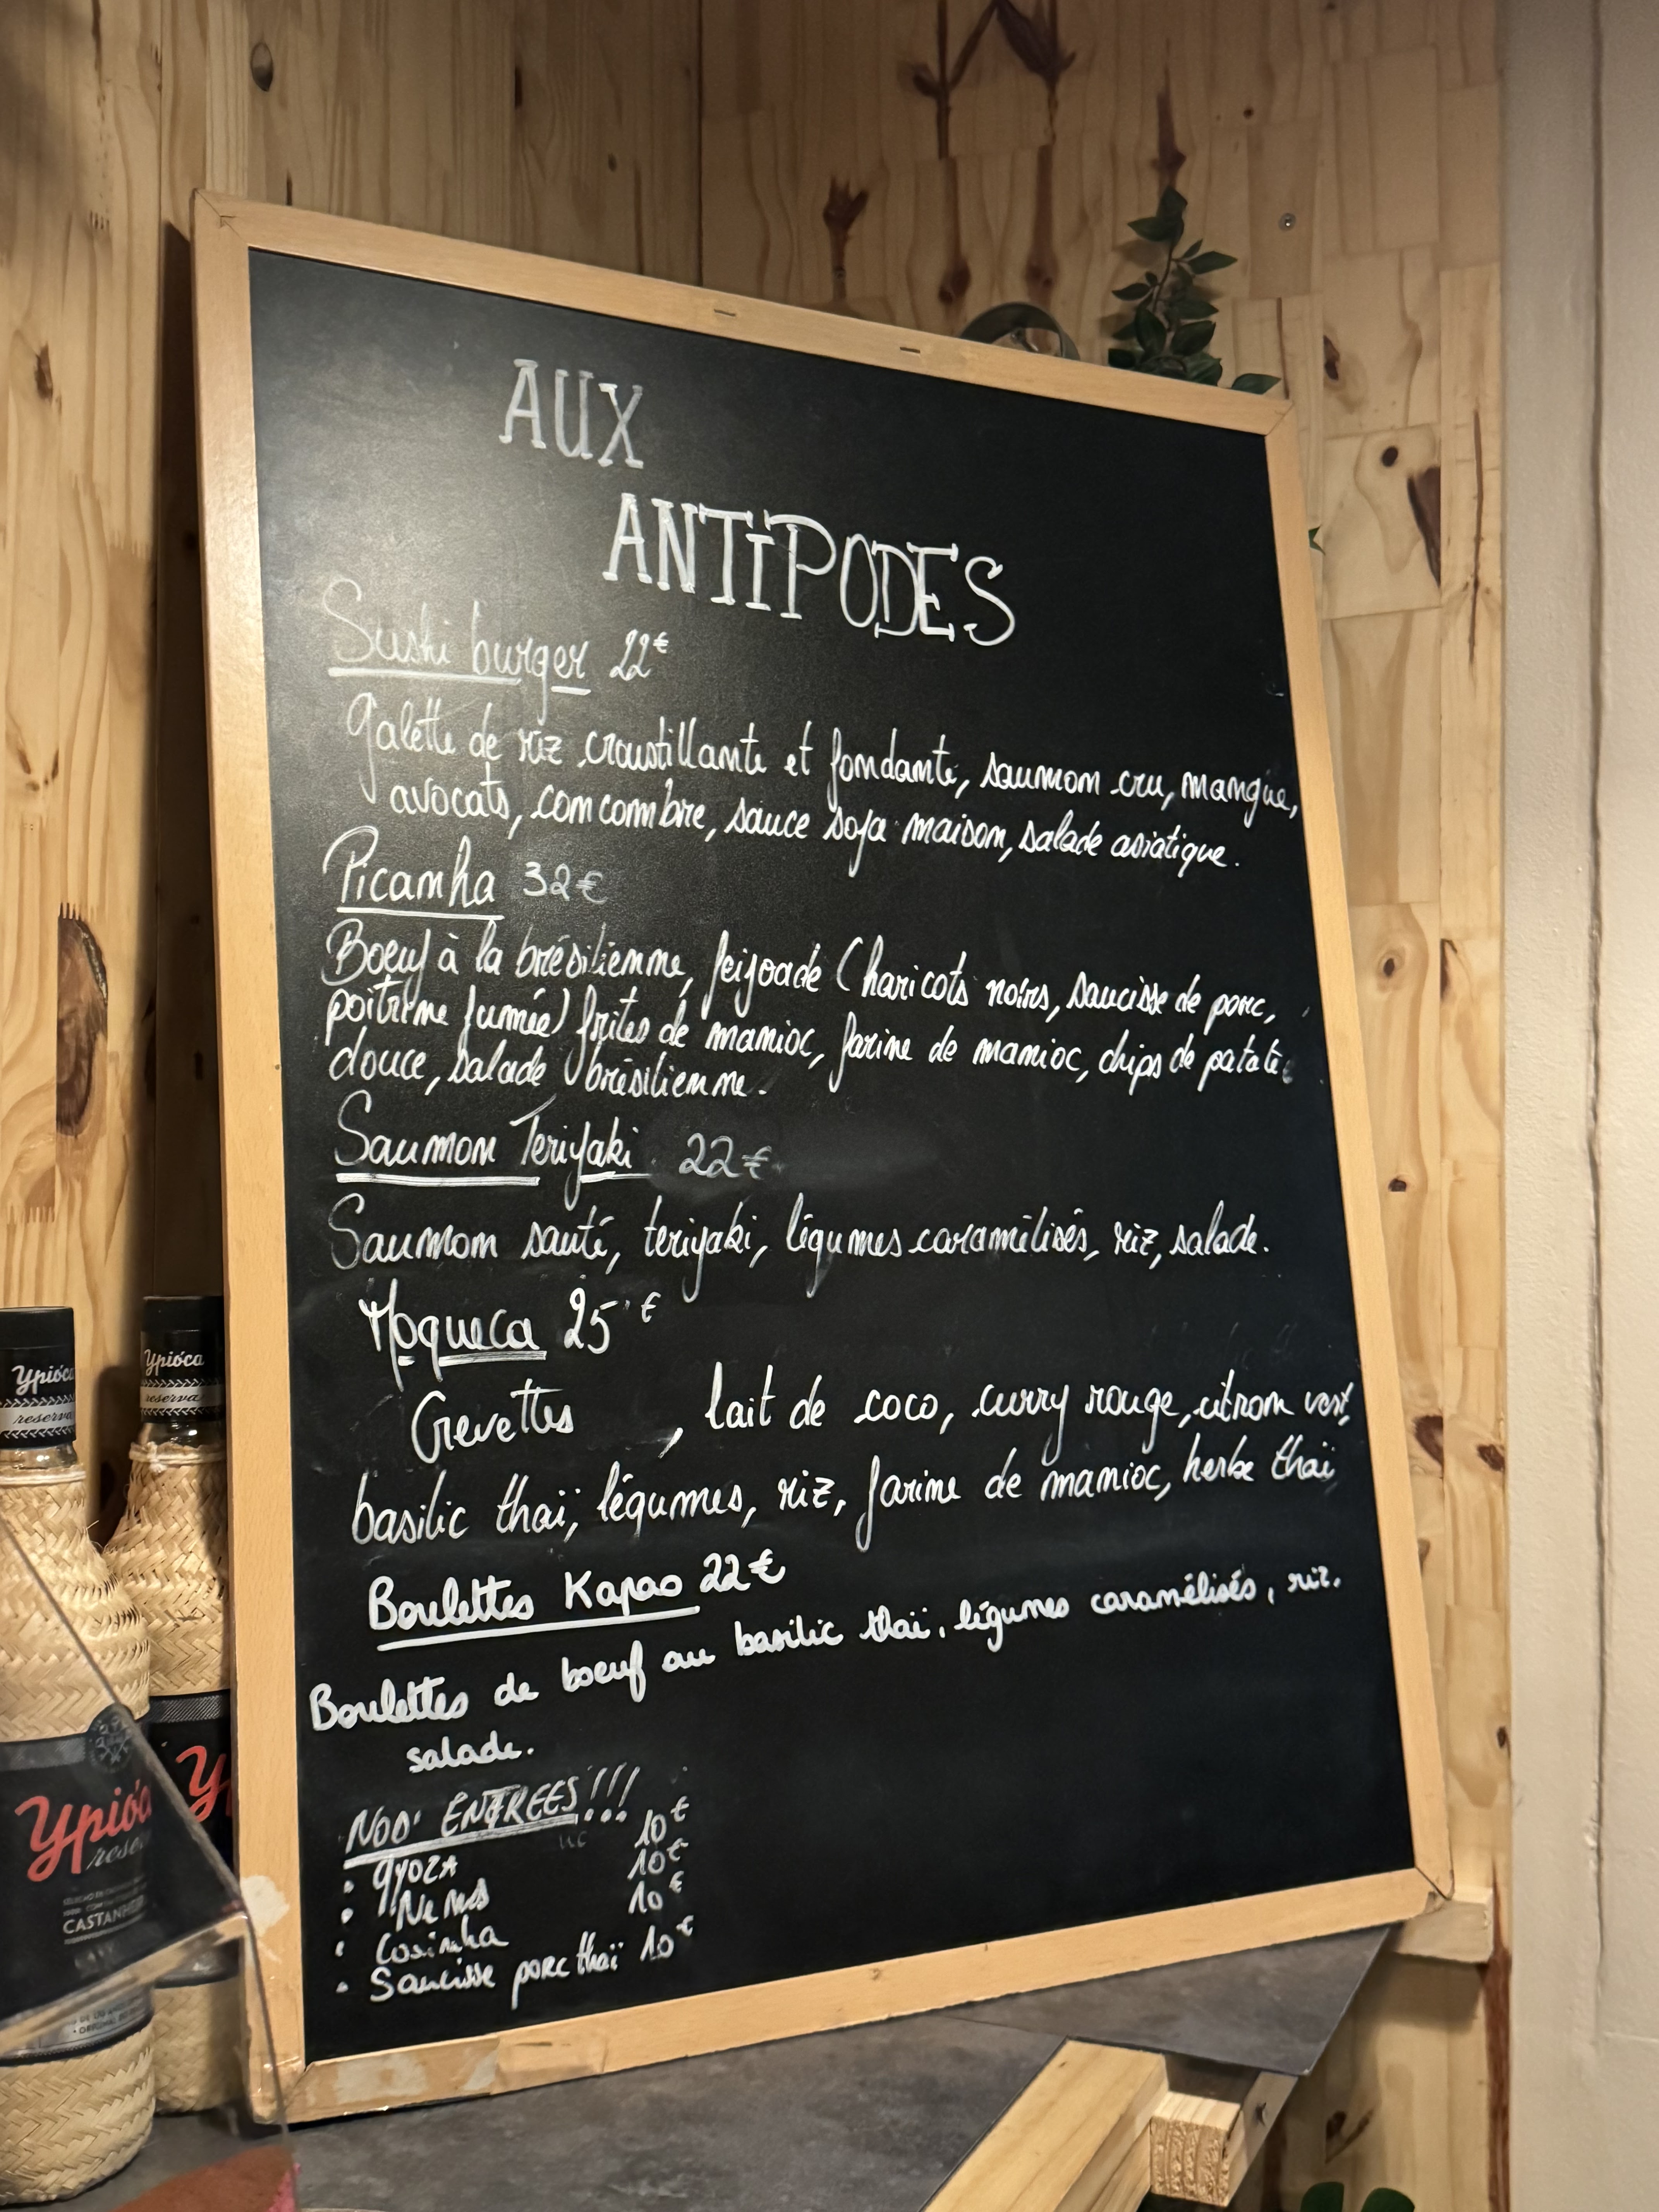 AUX
ANTIPODES
Sushi burger 22€
Galette de riz croustillante et fondante, saumon cru, mangue,
avocats, concombre, sauce soja maison, salade asiatique.
Picanha 32€
Boeuf à la brésilienne, feijoade (haricots noirs, saucisse de porc,
poitrine fumée) frites de manioc, farine de manioc, chips de patate
douce, salade brésilienne.
Saumon Teriyaki 22€
Saumon sauté, teriyaki, légumes caramélisés, riz, salade.
Moqueca 25€
Crevettes , lait de coco, curry rouge, citron vert,
basilic thaï, légumes, riz, farine de manioc, herbe thaï
Boulettes Kapao 22€
Boulettes de boeuf au basilic thaï, légumes caramélisés, riz.
salade.
NOS ENTREES!!!
• gyoza 10€
• Nems 10€
• Cosinha 10€
• Saucisse porc thaï 10€
Ypióca
reserva
Ypióca
reserva
Ypióca